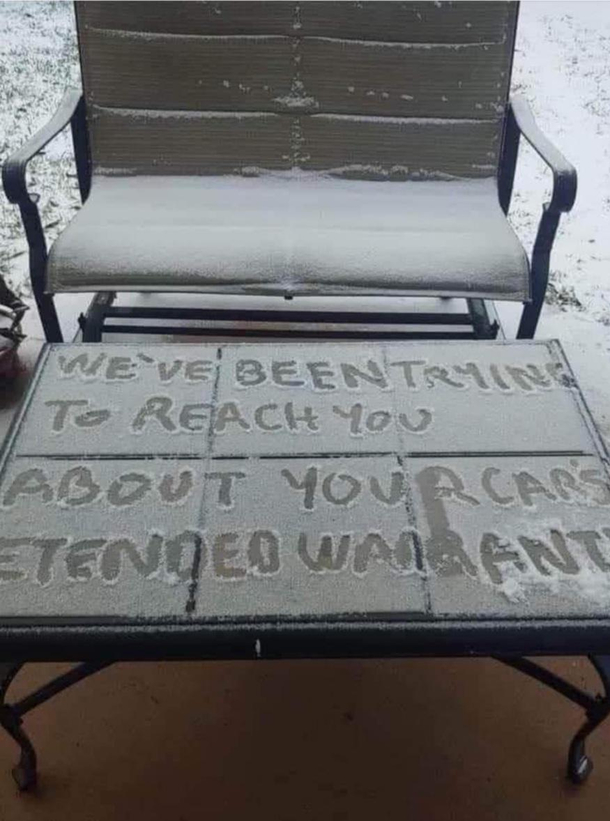 WE'VE BEEN TRYING
TO REACH YOU
ABOUT YOUR CAR'S
ETENDED WARRANT